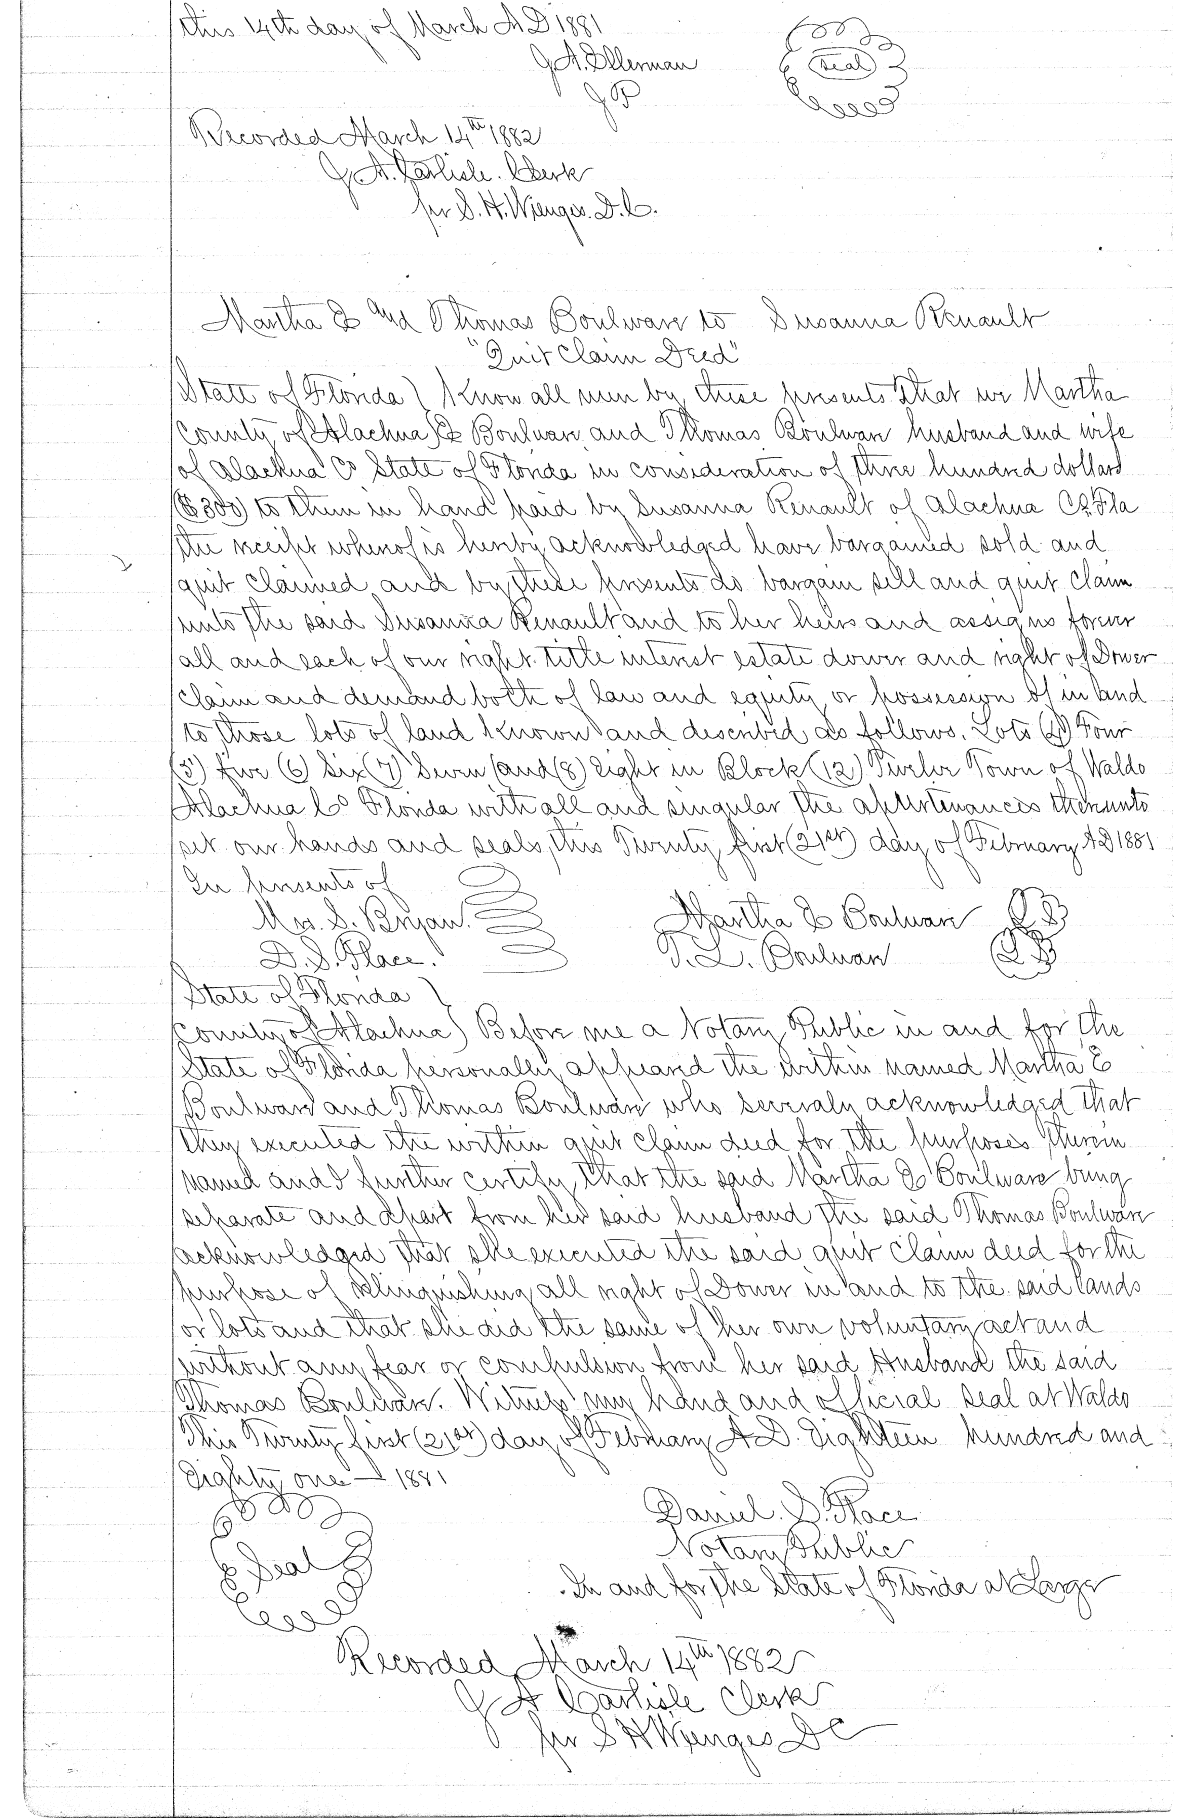 this 14th day of March A D 1881
J. A. Ellerman
J P
Seal
Recorded March 14th 1882
J. A. Carlisle. Clerk
per S. H. Wienges. D. C.
Martha E and Thomas Boulware to Susanna Renault
"Quit Claim Deed"
State of Florida ) Know all men by these presents that we Martha
County of Alachua ) E Boulware and Thomas Boulware husband and wife
of Alachua Co State of Florida in consideration of three hundred dollars
($300) to them in hand paid by Susanna Renault of Alachua Co. Fla
the receipt whereof is hereby acknowledged have bargained sold and
quit claimed and by these presents do bargain sell and quit claim
unto the said Susanna Renault and to her heirs and assigns forever
all and each of our right title interest estate dower and right of Dower
Claim and demand both of law and equity or possession of in and
to those lots of land known and described as follows. Lots (4) Four
(5) five (6) Six (7) Seven (and (8) Eight in Block (12) Twelve Town of Waldo
Alachua Co Florida with all and singular the appurtenances thereunto
set our hands and seals, this Twenty first (21st) day of February A D 1881
In presents of
Mrs S. Bryan. Martha E Boulware L S
D. S. Place. T. L. Boulware L S
State of Florida )
County of Alachua ) Before me a Notary Public in and for the
State of Florida personally appeared the within named Martha E
Boulware and Thomas Boulware who severaly acknowledged that
they executed the within quit claim deed for the purposes therein
named and I further certify that the said Martha E Boulware being
separate and apart from her said husband the said Thomas Boulware
acknowledged that she executed the said quit claim deed for the
purpose of relinquishing all right of Dower in and to the said lands
or lots and that she did the same of her own voluntary act and
without any fear or compulsion from her said Husband the said
Thomas Boulware. Witness my hand and official seal at Waldo
This Twenty first (21st) day of February A. D. Eighteen hundred and
Eighty one — 1881
Daniel. S. Place
Seal
Notary Public
In and for the State of Florida at Large
Recorded March 14th 1882
J A Carlisle Clerk
per S H Wienges D C